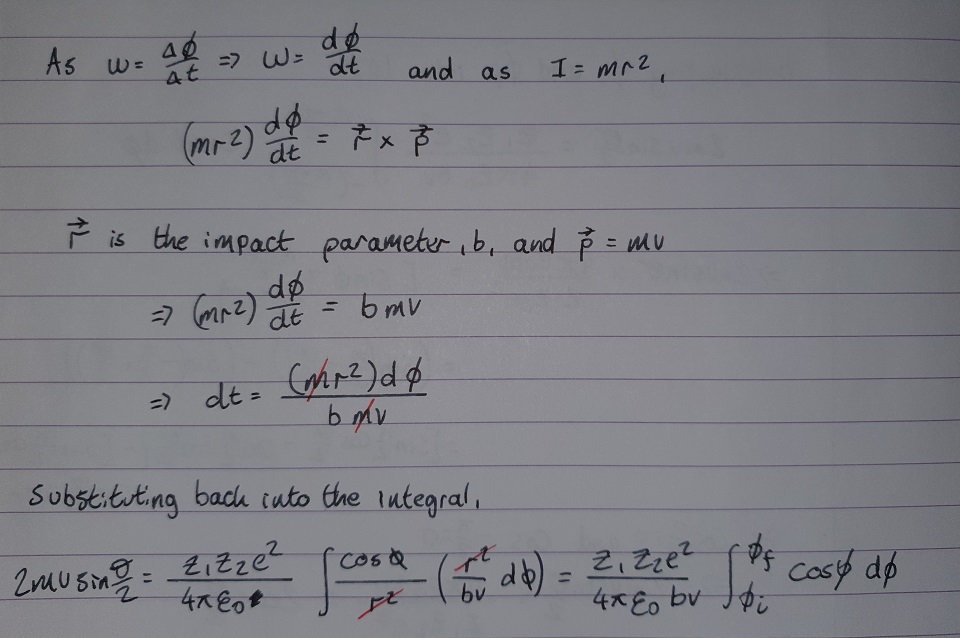 As ω = Δφ/Δt ⇒ ω = dφ/dt and as I = mr²,
(mr²) dφ/dt = r⃗ × p⃗
r⃗ is the impact parameter, b, and p⃗ = mv
⇒ (mr²) dφ/dt = bmv
⇒ dt = (mr²)dφ / bmv
Substituting back into the integral,
2mv sin θ/2 = z₁z₂e²/4πε₀ ∫ cosφ/r² (r²/bv dφ) = z₁z₂e²/4πε₀bv ∫_φi^φf cosφ dφ